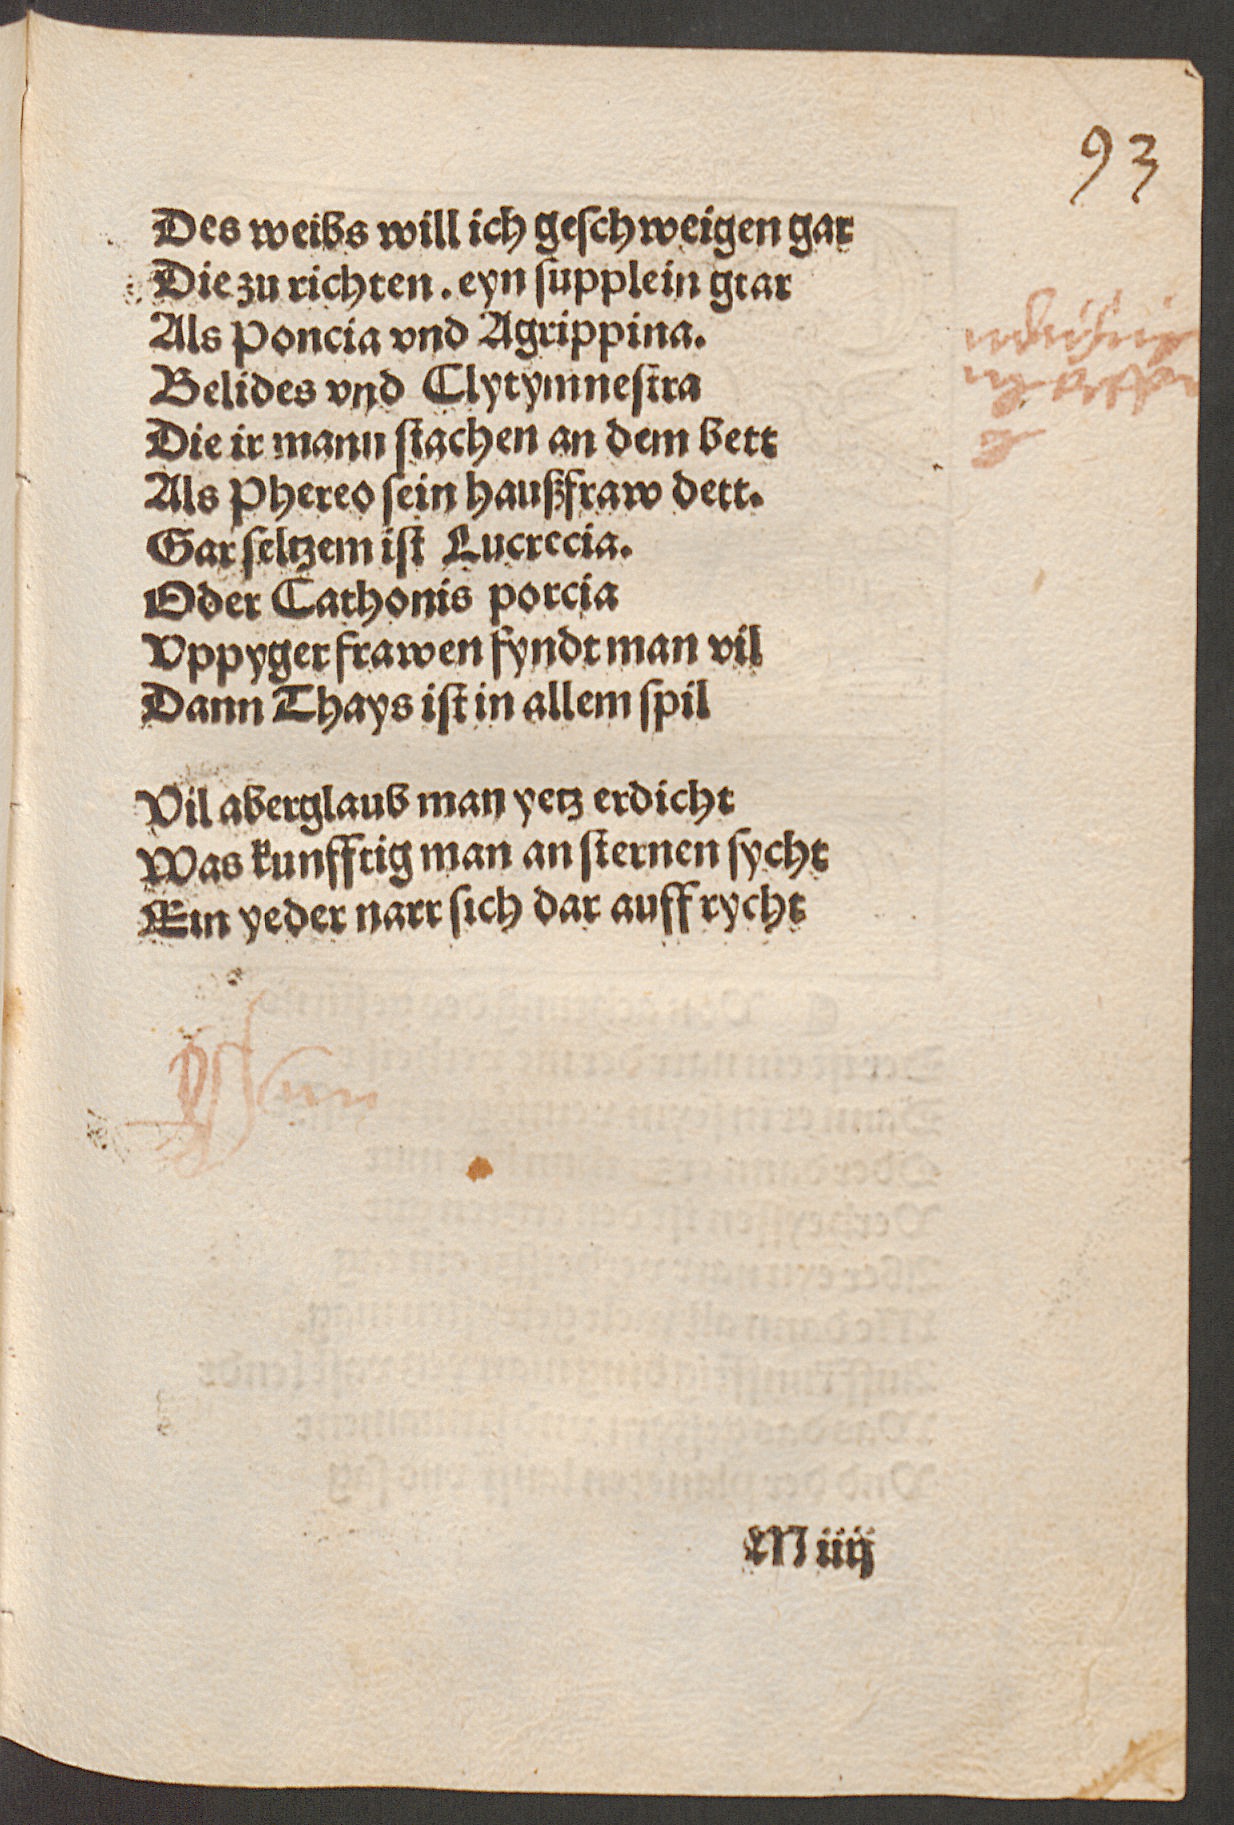 93
Des weibs will ich geſchweigen gar
Die zu richten . eyn ſupplein gtar
Als Poncia vnd Agrippina.
Belides vnd Clytymneſtra
Die ir mann ſtachen an dem bett
Als Phereo ſein haußfraw dett.
Gar ſeltzem iſt Lucrecia.
Oder Cathonis porcia
Vppyger frawen fyndt man vil
Dann Thays iſt in allem ſpil
Vil aberglaub man yetz erdicht
Was kunfftig man an ſternen ſycht
Ein yeder narr ſich dar auff rycht
M iiij